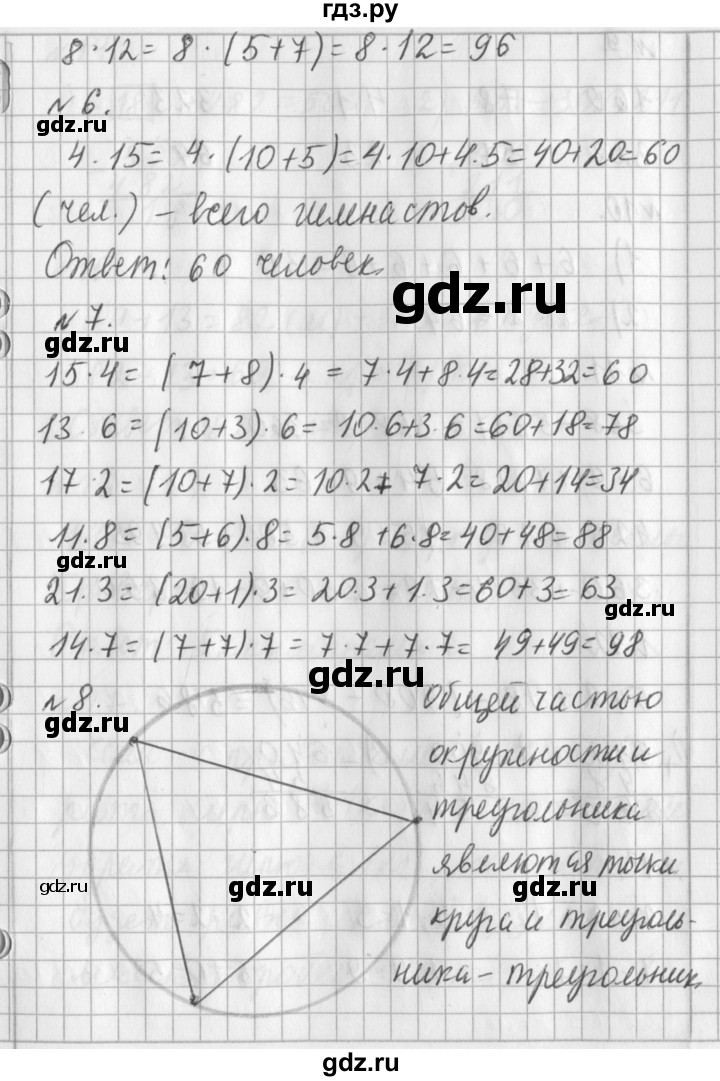 гдз.ру
8·12= 8·(5+7)=8·12=96
№6.
gdz.ru
4·15= 4·(10+5)=4·10+4·5=40+20=60
(чел.) – всего гимнастов.
Ответ: 60 человек.
gdz.ru
№7.
gdz.ru
15·4= (7+8)·4 = 7·4+8·4=28+32=60
13·6=(10+3)·6= 10·6+3·6=60+18=78
17·2=(10+7)·2=10·2+7·2=20+14=34
gdz.ru
11·8=(5+6)·8=5·8+6·8=40+48=88
gdz.ru
21·3=(20+1)·3=20·3+1·3=60+3=63
gdz.ru
14·7=(7+7)·7=7·7+7·7= 49+49=98
gdz.ru
№8.
gdz.ru
общей частью
окружности и
треугольника
являются точки
gdz.ru
gdz.ru
gdz.ru
круга и треуголь-
ника – треугольник.
gdz.ru